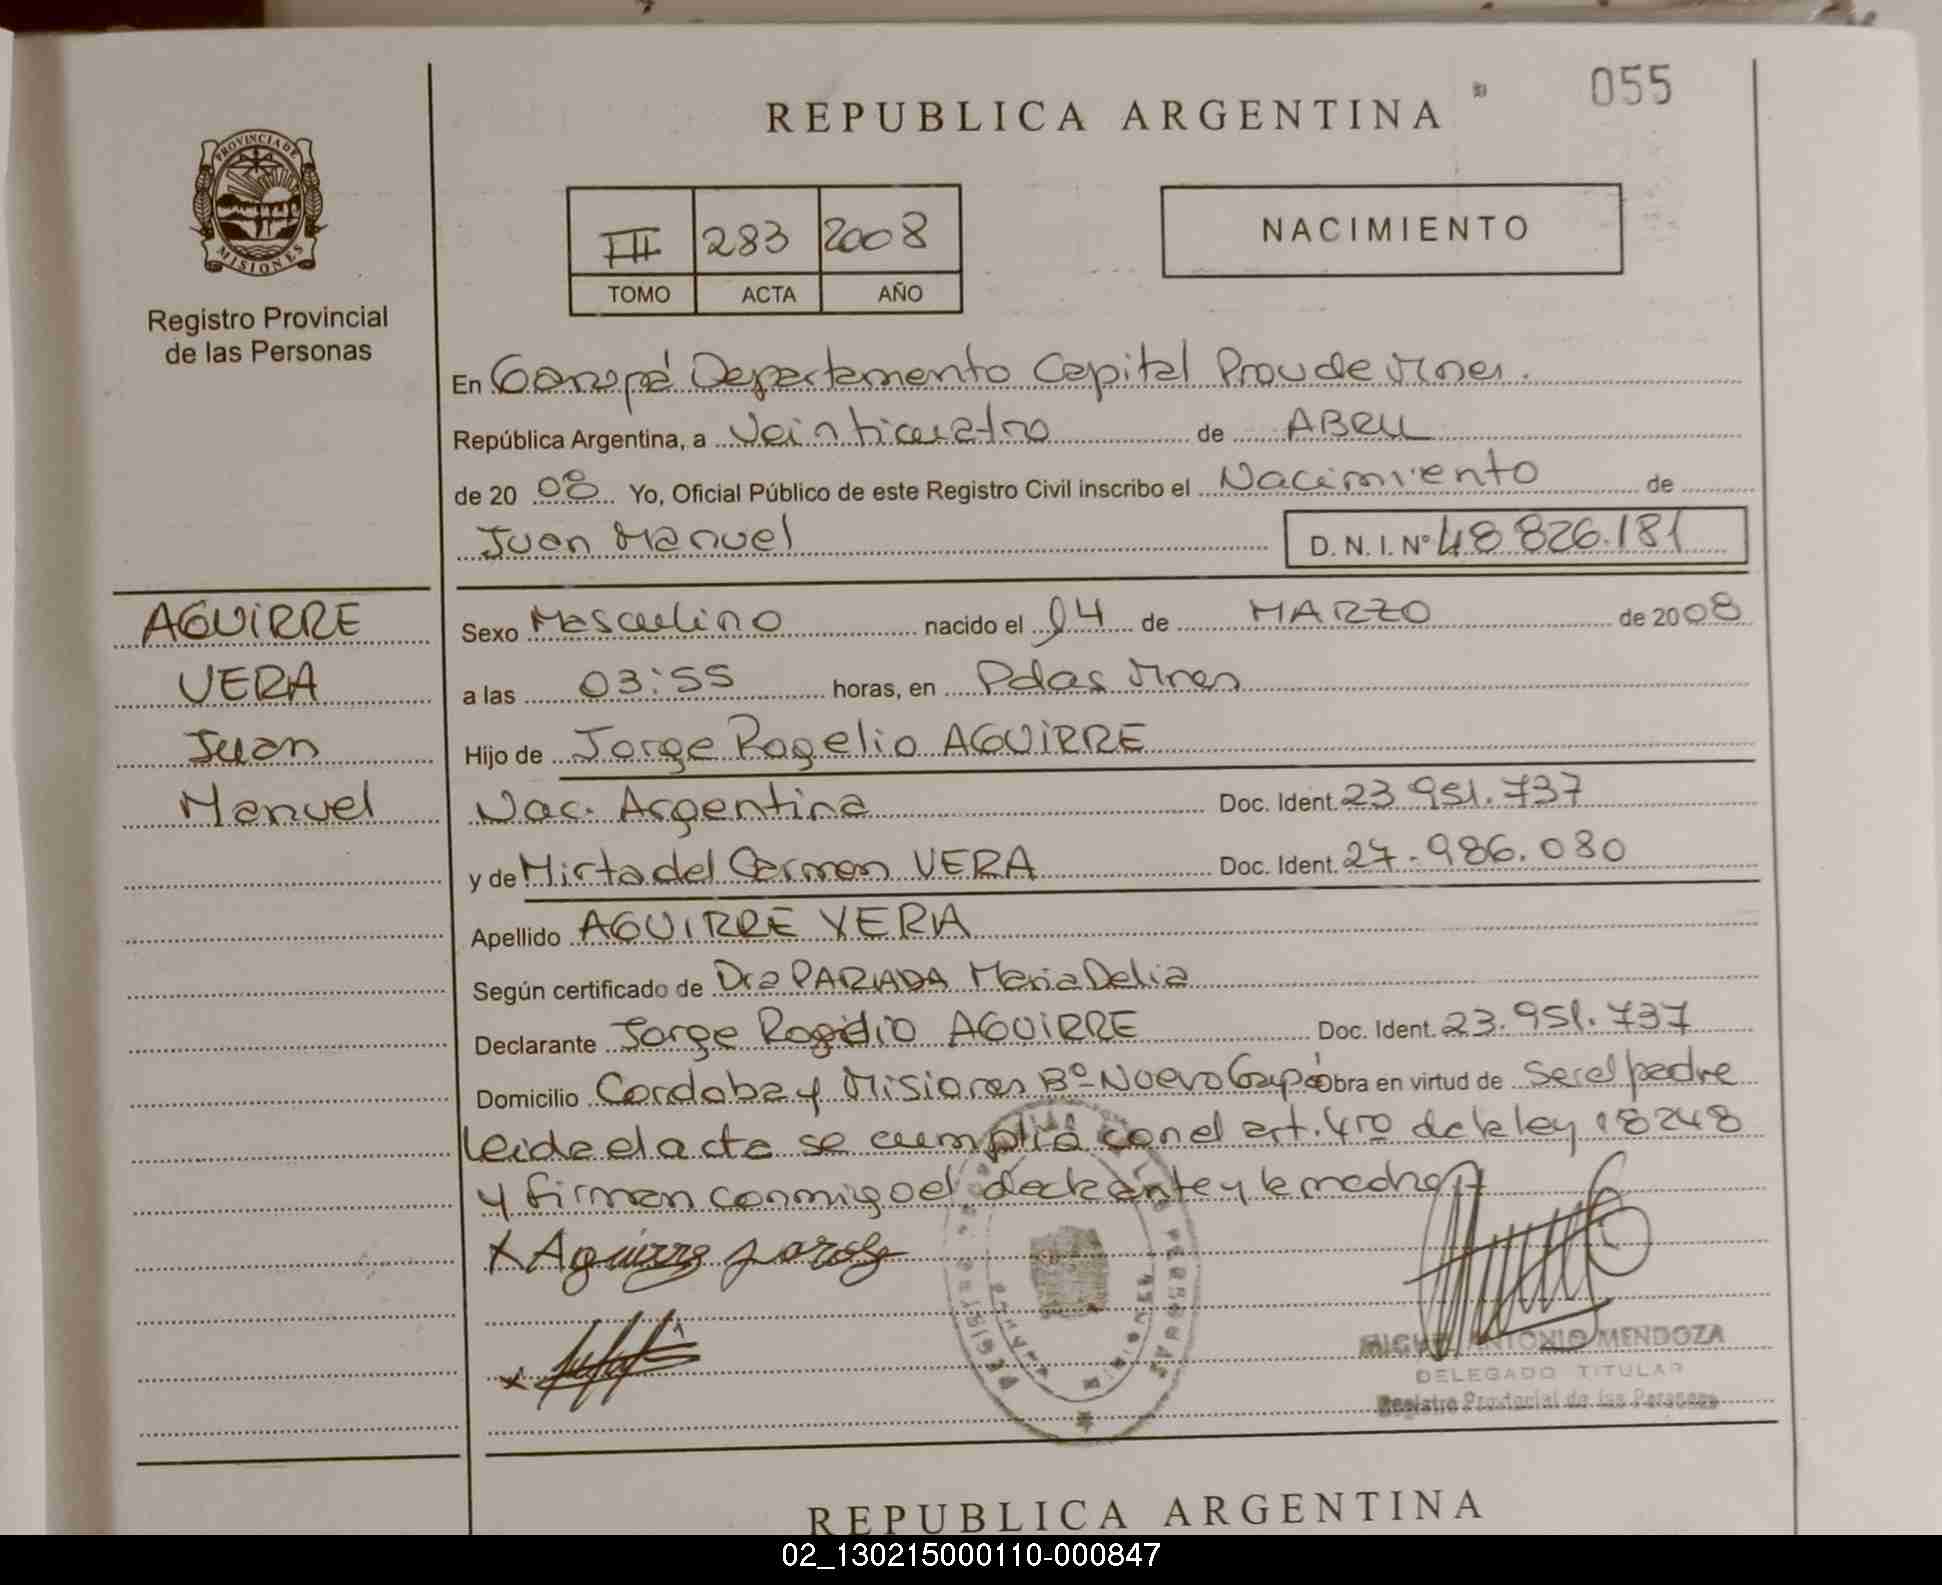 055
REPUBLICA ARGENTINA
PROVINCIA DE
MISIONES
Registro Provincial
de las Personas
III 283 2008
TOMO ACTA AÑO
NACIMIENTO
En Garupá Departamento Capital Prov de Mnes.
República Argentina, a Veinticuatro de ABRIL
de 20 08 Yo, Oficial Público de este Registro Civil inscribo el Nacimiento de
Juan Manuel D. N. I. Nº 48 826.181
AGUIRRE
VERA
Juan
Manuel
Sexo Masculino nacido el 14 de MARZO de 2008
a las 03:55 horas, en Pdas Mnes
Hijo de Jorge Rogelio AGUIRRE
Nac. Argentina Doc. Ident. 23 951.737
y de Mirta del Carmen VERA Doc. Ident. 27.986.080
Apellido AGUIRRE VERA
Según certificado de Dra PARADA Maria Delia
Declarante Jorge Rogelio AGUIRRE Doc. Ident. 23.951.737
Domicilio Cordoba y Misiones Bº Nuevo Garupá Obra en virtud de Ser el padre
leida el acta se cumplió con el art. 4to de la ley 18248
y firman conmigo el declarante y la madre
x Aguirre Jorge
MIGUEL ANTONIO MENDOZA
DELEGADO TITULAR
Registro Provincial de las Personas
REPUBLICA ARGENTINA
02_130215000110-000847